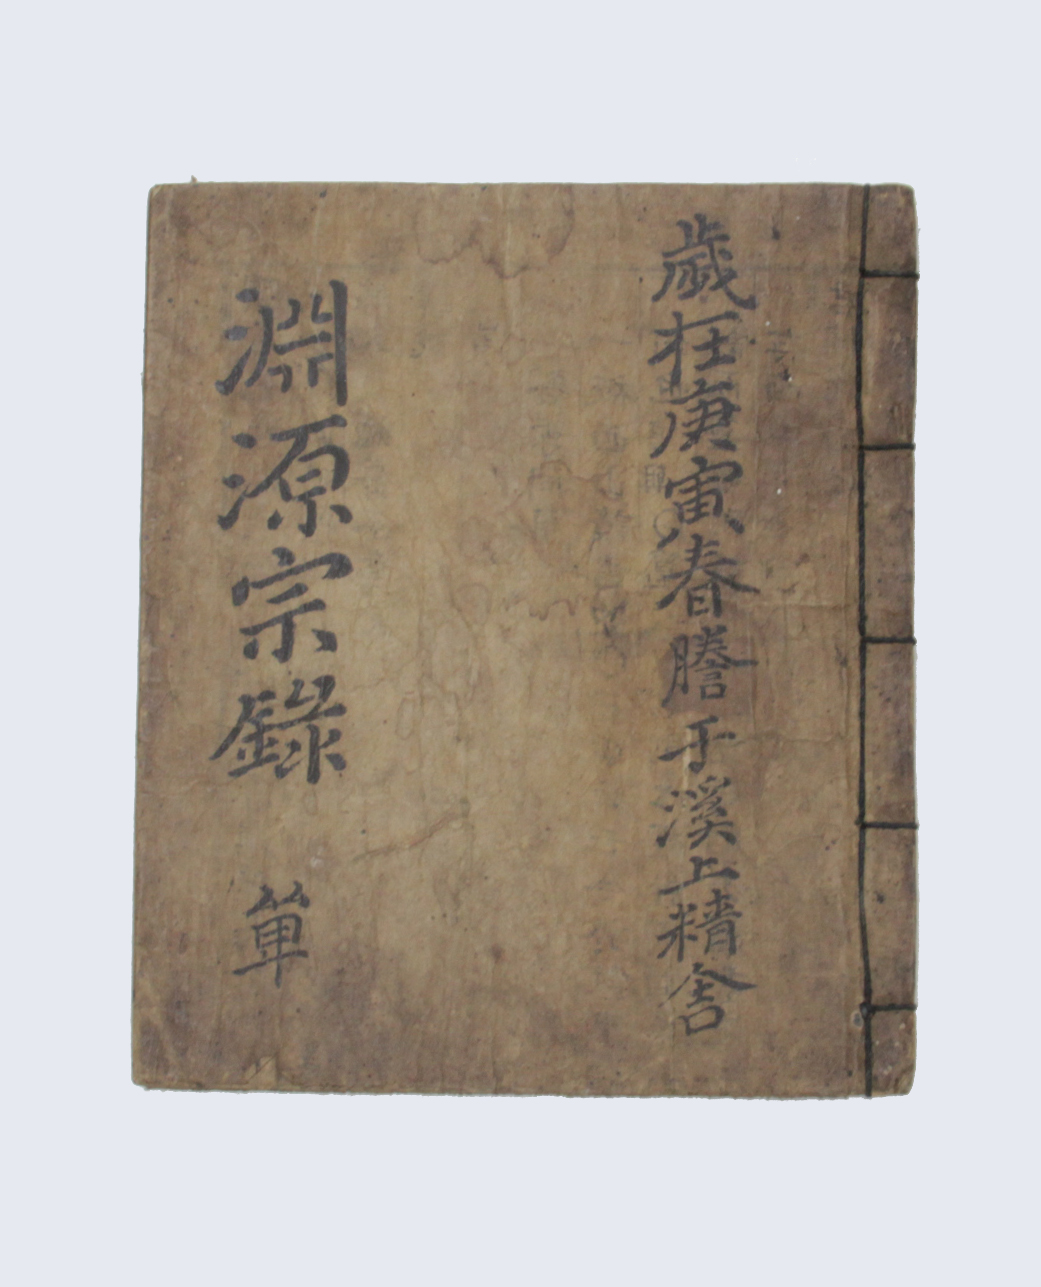 歲在庚寅春謄于溪上精舍
淵源宗錄 單